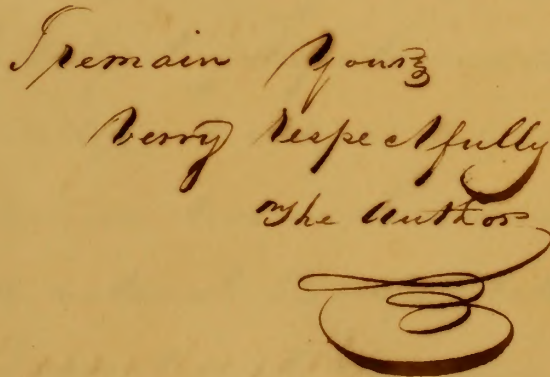 I remain Yours
verry respectfully
The Author